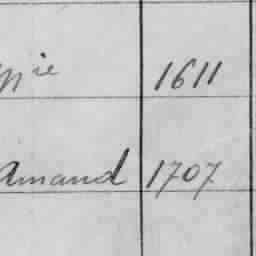 ppie 1611
Amand 1707